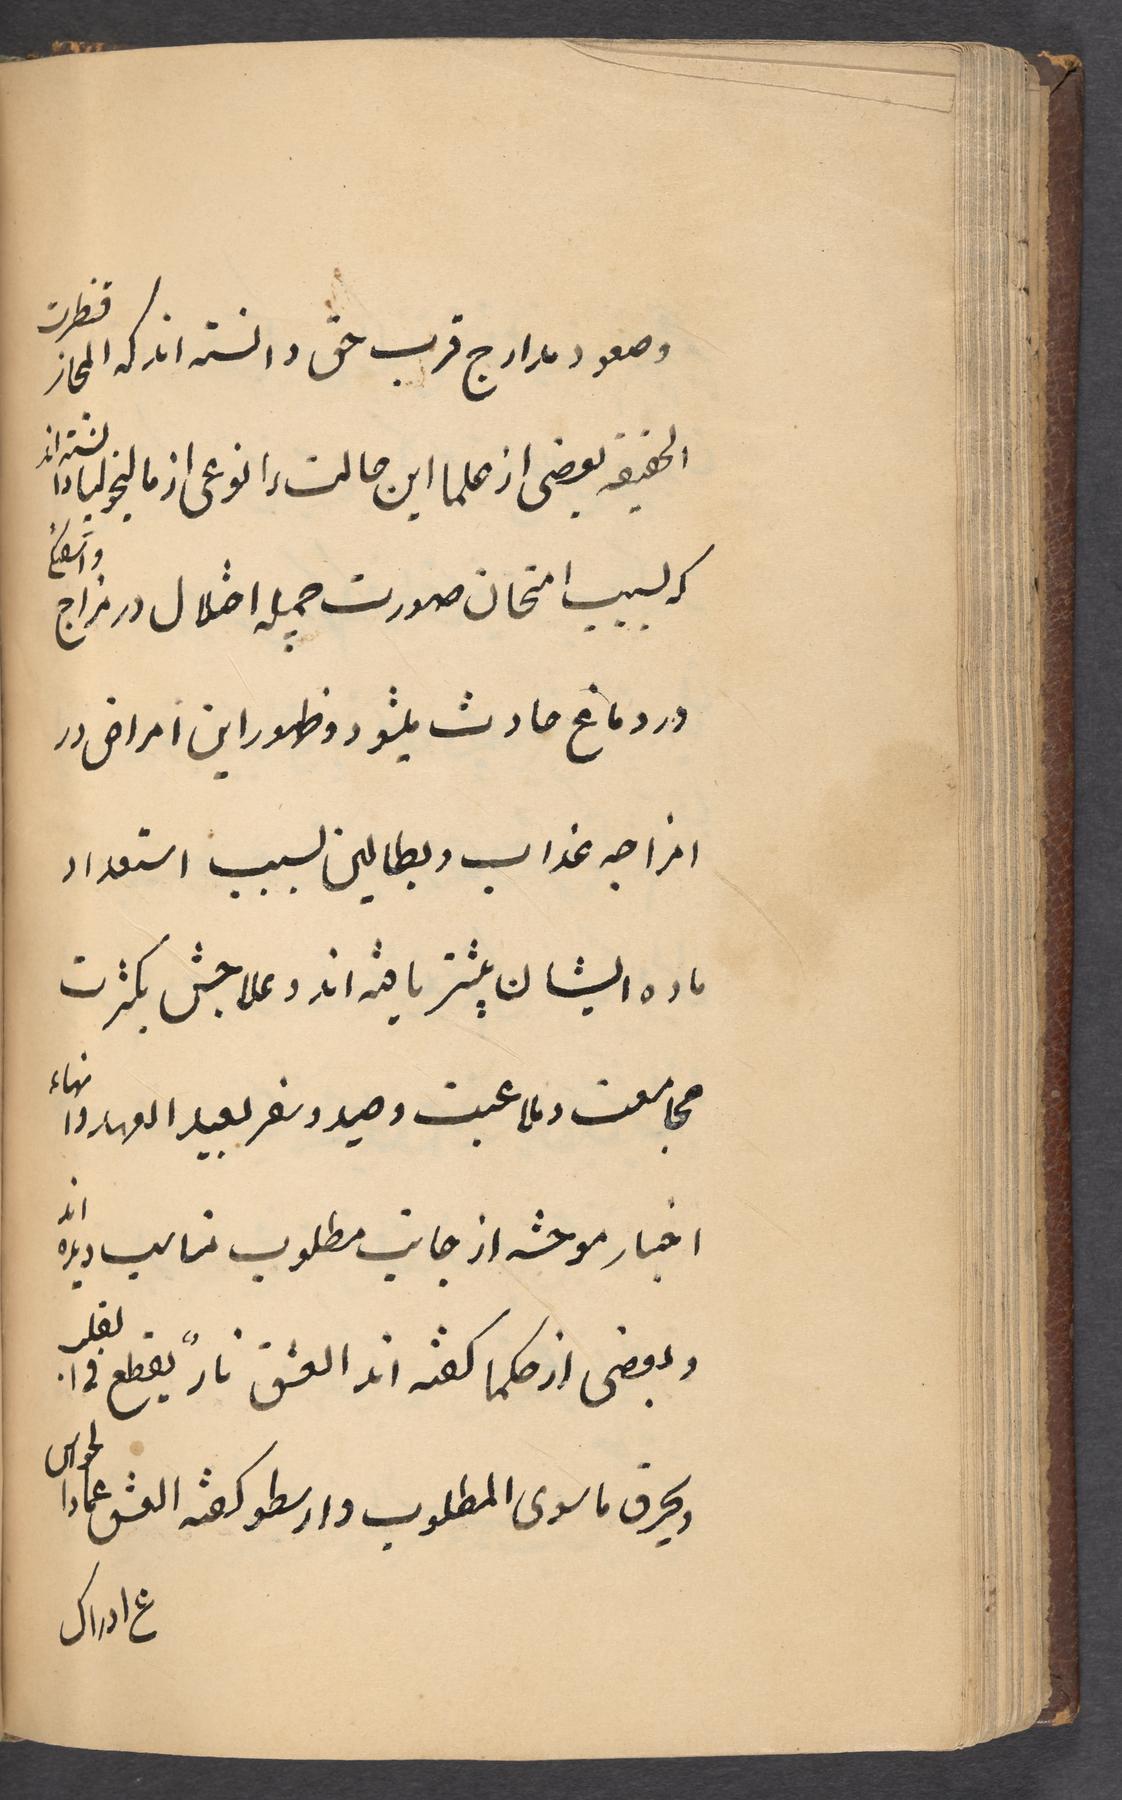 وصعود مدارج قرب حق دانسته اند که المجاز قنطرت
الحقیقه بعضی از علما این حالت را نوعی از مالیخولیا دانسته اند
که بسبب امتحان صورت جمیله اختلال در مزاج و
در دماغ حادث میشود و ظهور این امراض در
امزاجه عذاب و بطالین بسبب استعداد
ماده ایشان بیشتر یافته اند و علاجش بکثرت
مجامعت و ملاعبت و صید و سفر بعید العهد و انهاء
اخبار موحشه از جانب مطلوب مناسب دیده اند
و بعضی از حکما کفته اند العشق نارٌ یقطع فی القلب
و یحرق ما سوی المطلوب و ارسطو کفته العشق عماء الحواس
ع ادراک